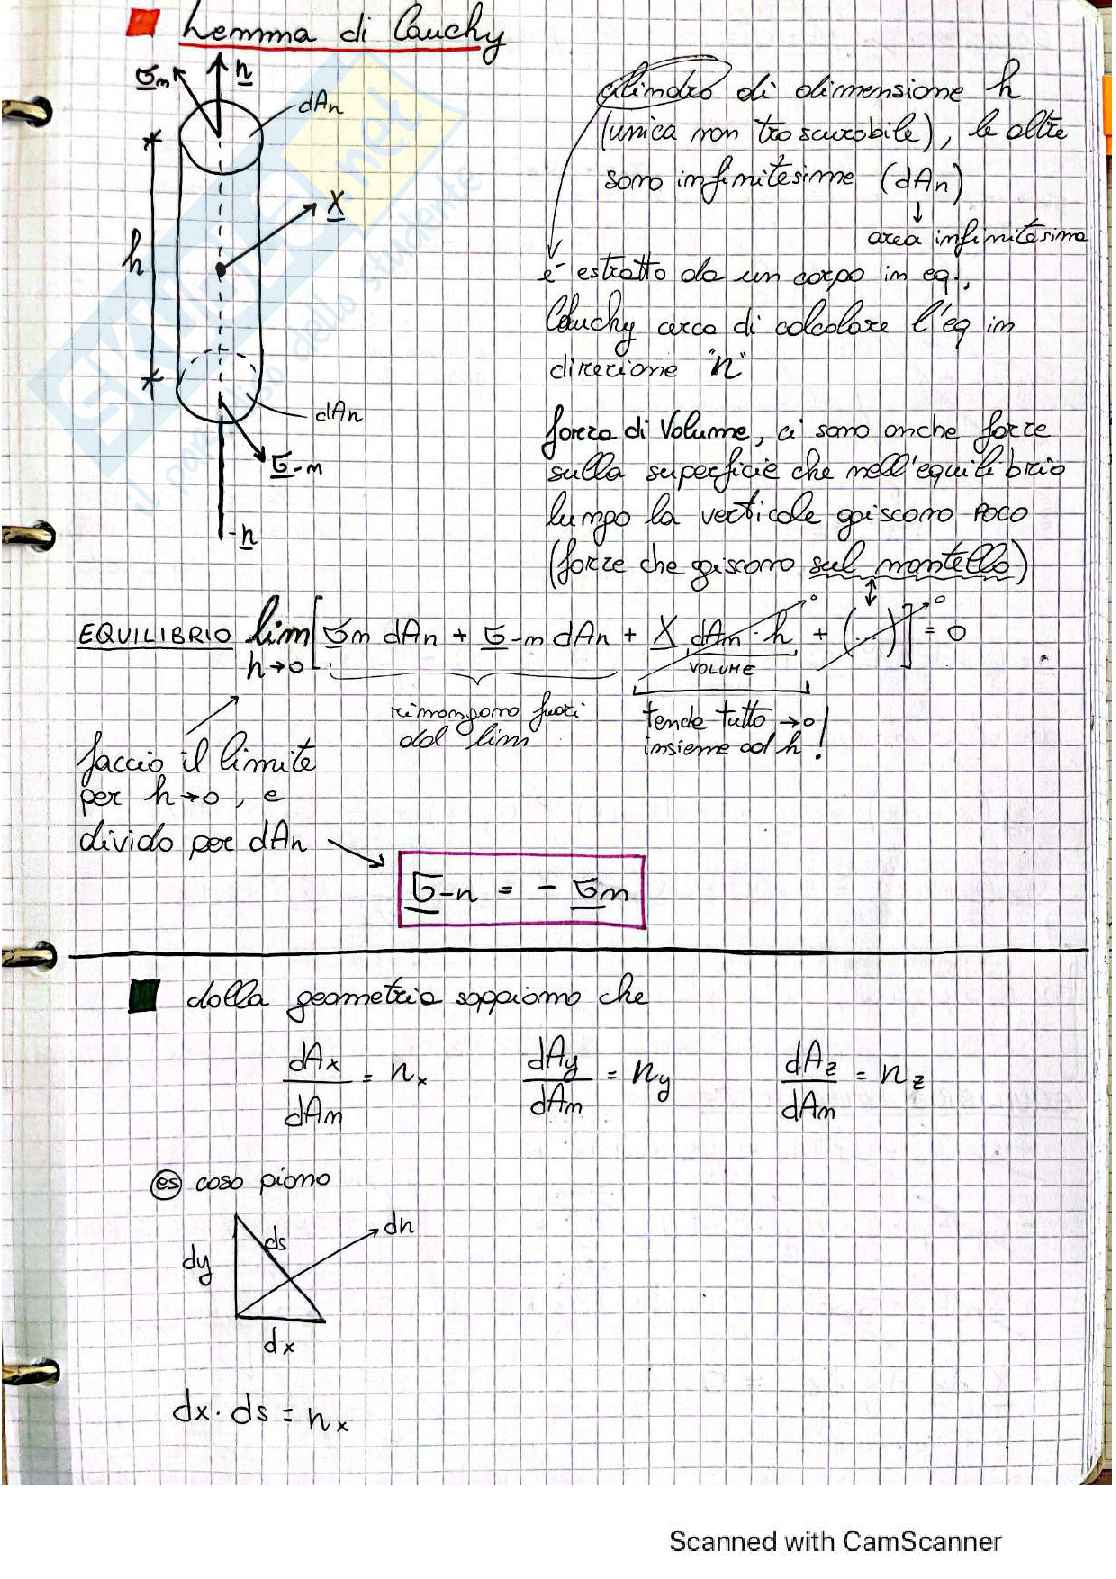 Lemma di Cauchy
σn n
dAn
X
h
dAn
σ-n
-n
cilindro di dimensione h
(unica non trascurabile), le altre
sono infinitesime (dAn)
↓
area infinitesima
è estratto da un corpo in eq.,
Cauchy cerca di calcolare l'eq in
direzione "n"
forza di Volume, ci sono anche forze
sulla superficie che nell'equilibrio
lungo la verticale agiscono poco
(forze che agiscono sul mantello)
EQUILIBRIO lim h→0 [σn dAn + σ-n dAn + X dAn · h + (...)] = 0
VOLUME
rimangono fuori
dal lim
tende tutto →0
insieme ad h!
faccio il limite
per h→0, e
divido per dAn
σ-n = - σn
dalla geometria sappiamo che
dAx/dAn = nx dAy/dAn = ny dAz/dAn = nz
es caso piano
dy ds dn
dx
dx · ds = nx
Scanned with CamScanner